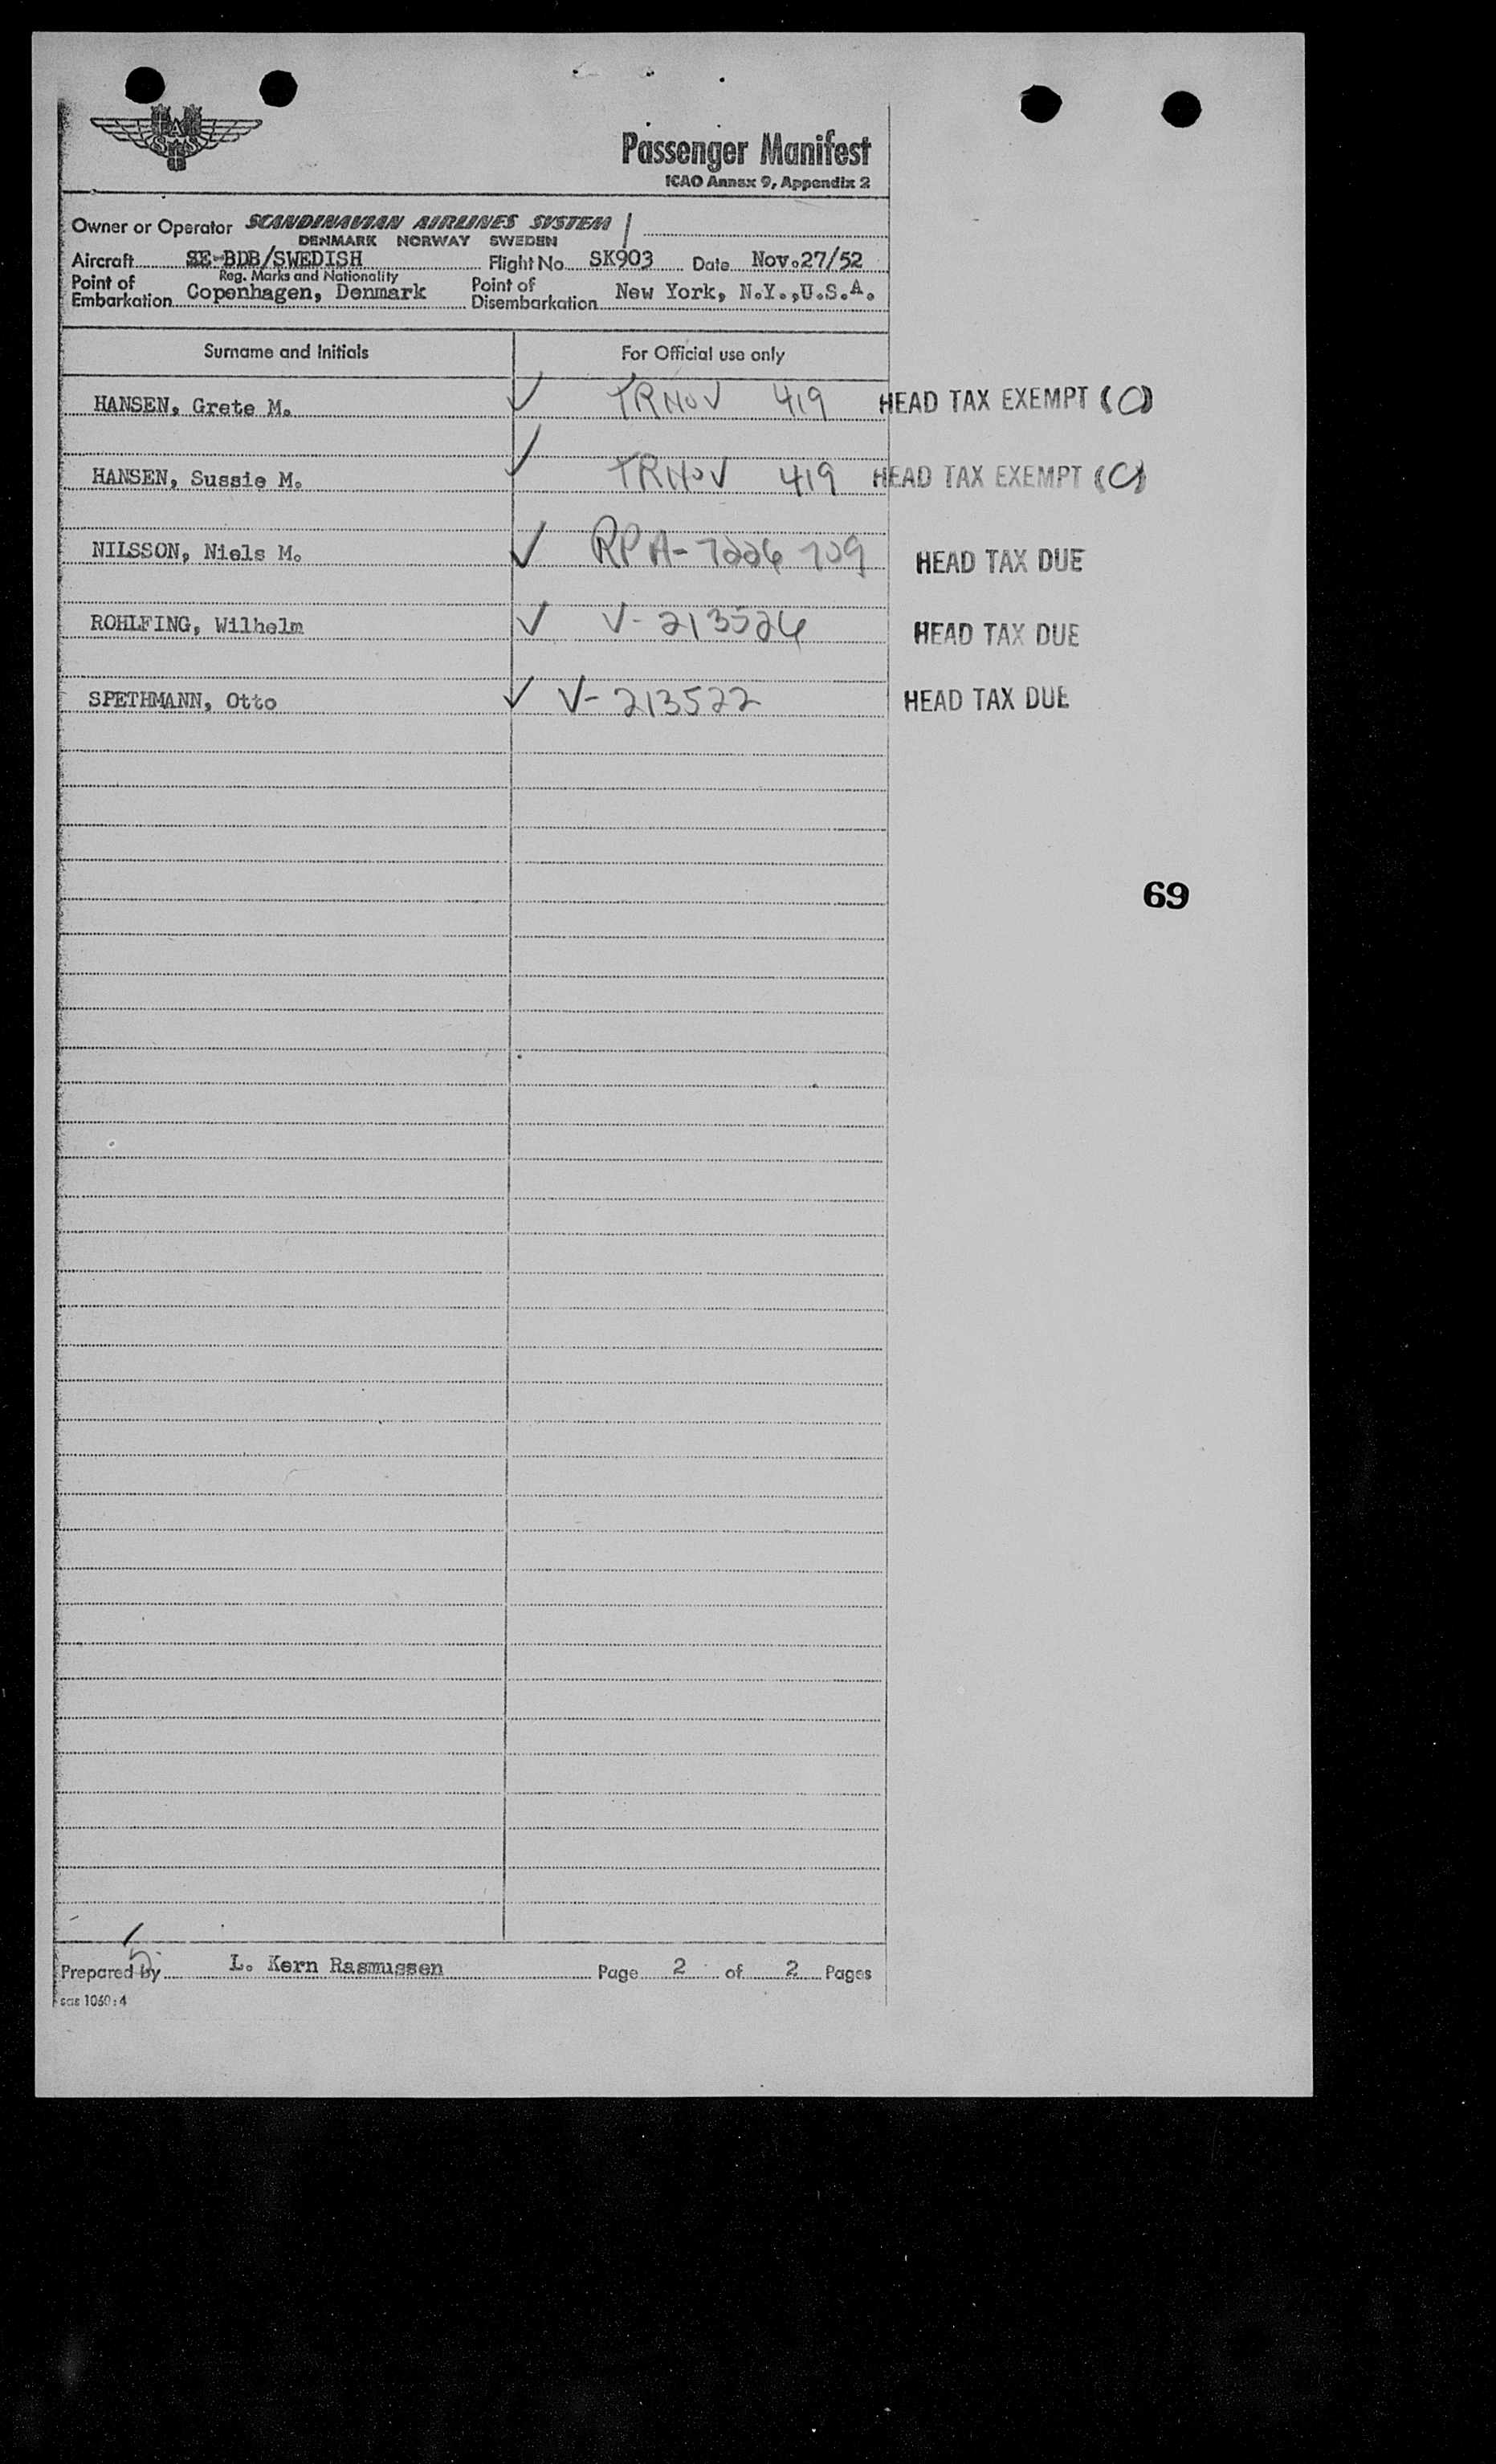 SAS
Passenger Manifest
ICAO Annex 9, Appendix 2
Owner or Operator SCANDINAVIAN AIRLINES SYSTEM
DENMARK NORWAY SWEDEN
Aircraft SE-BDB/SWEDISH Flight No. SK903 Date Nov.27/52
Reg. Marks and Nationality
Point of Embarkation Copenhagen, Denmark Point of Disembarkation New York, N.Y.,U.S.A.
Surname and Initials For Official use only
HANSEN, Grete M. ✓ TRNOV 419 HEAD TAX EXEMPT (C)
HANSEN, Sussie M. ✓ TRNOV 419 HEAD TAX EXEMPT (C)
NILSSON, Niels M. ✓ RP A-7226 709 HEAD TAX DUE
ROHLFING, Wilhelm ✓ V-213526 HEAD TAX DUE
SPETHMANN, Otto ✓ V-213522 HEAD TAX DUE
69
5
Prepared by L. Kern Rasmussen Page 2 of 2 Pages
sas 1060:4